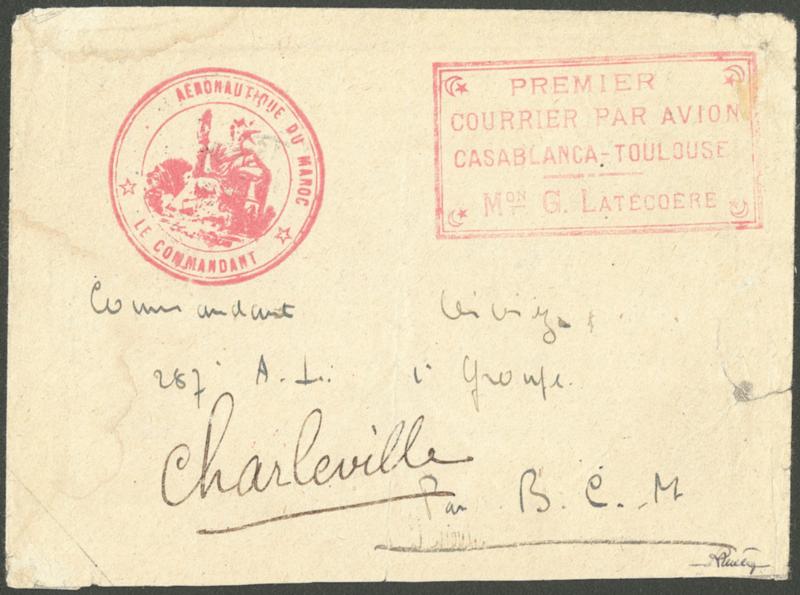 AÉRONAUTIQUE DU MAROC
LE COMMANDANT
PREMIER
COURRIER PAR AVION
CASABLANCA-TOULOUSE
MON G. LATÉCOÈRE
Commandant
287 A. L. 1 Groupe.
Charleville
Par B. C. M